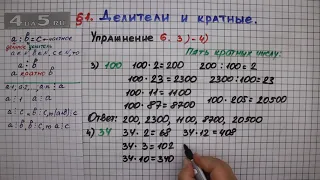 4 CLASS.RU
§1. Делители и кратные.
Упражнение 6. 3)-4)
Пять кратных числу.
a:b=c - частное
делимое делитель
a:b
a кратно b
a:1
a:a
3) 100
100·2=200 200:100=2
100·23=2300 2300:100=23
100·11=1100
100·87=8700 100·205=20500
Ответ: 200, 2300, 1100, 8700, 20500
4) 34
34·2=68 34·12=408
34·3=102
34·10=340